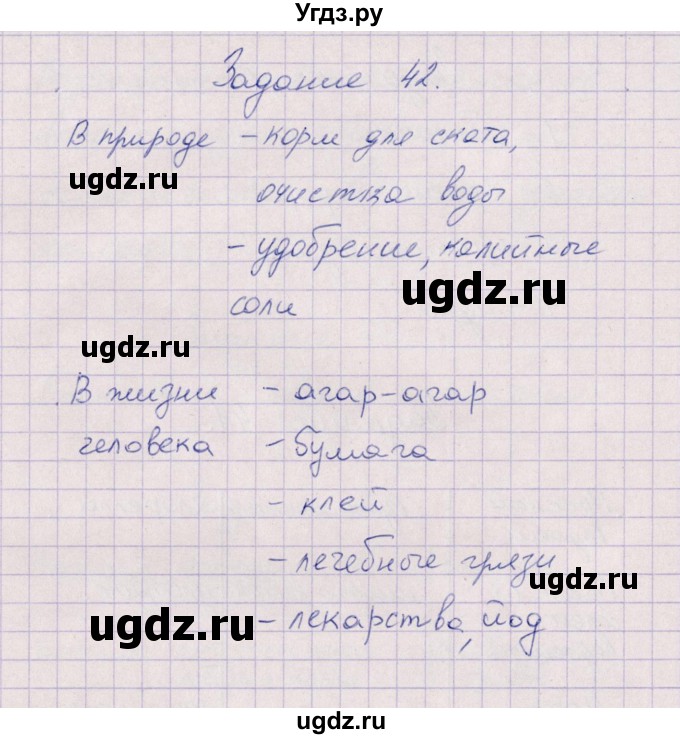 Угдз.ру
Задание 42.
В природе - корм для ската,
ugdz.ru
очистка воды
- удобрение, калийные
ugdz.ru
соли
ugdz.ru
В жизни - агар-агар
человека - бумага
- клей
- лечебные грязи
ugdz.ru
ugdz.ru - лекарства, йод
ugdz.ru